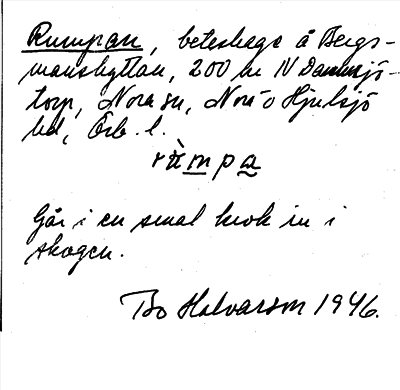 Rumpan, beteshage å Bergs-
manshyttan, 200 m N Dammsjö-
torp, Nora sn, Nora o Hjulsjö
hd, Örb. l.
rùmpa
Går i en smal krok in i
skogen.
Bo Halvarson 1946.